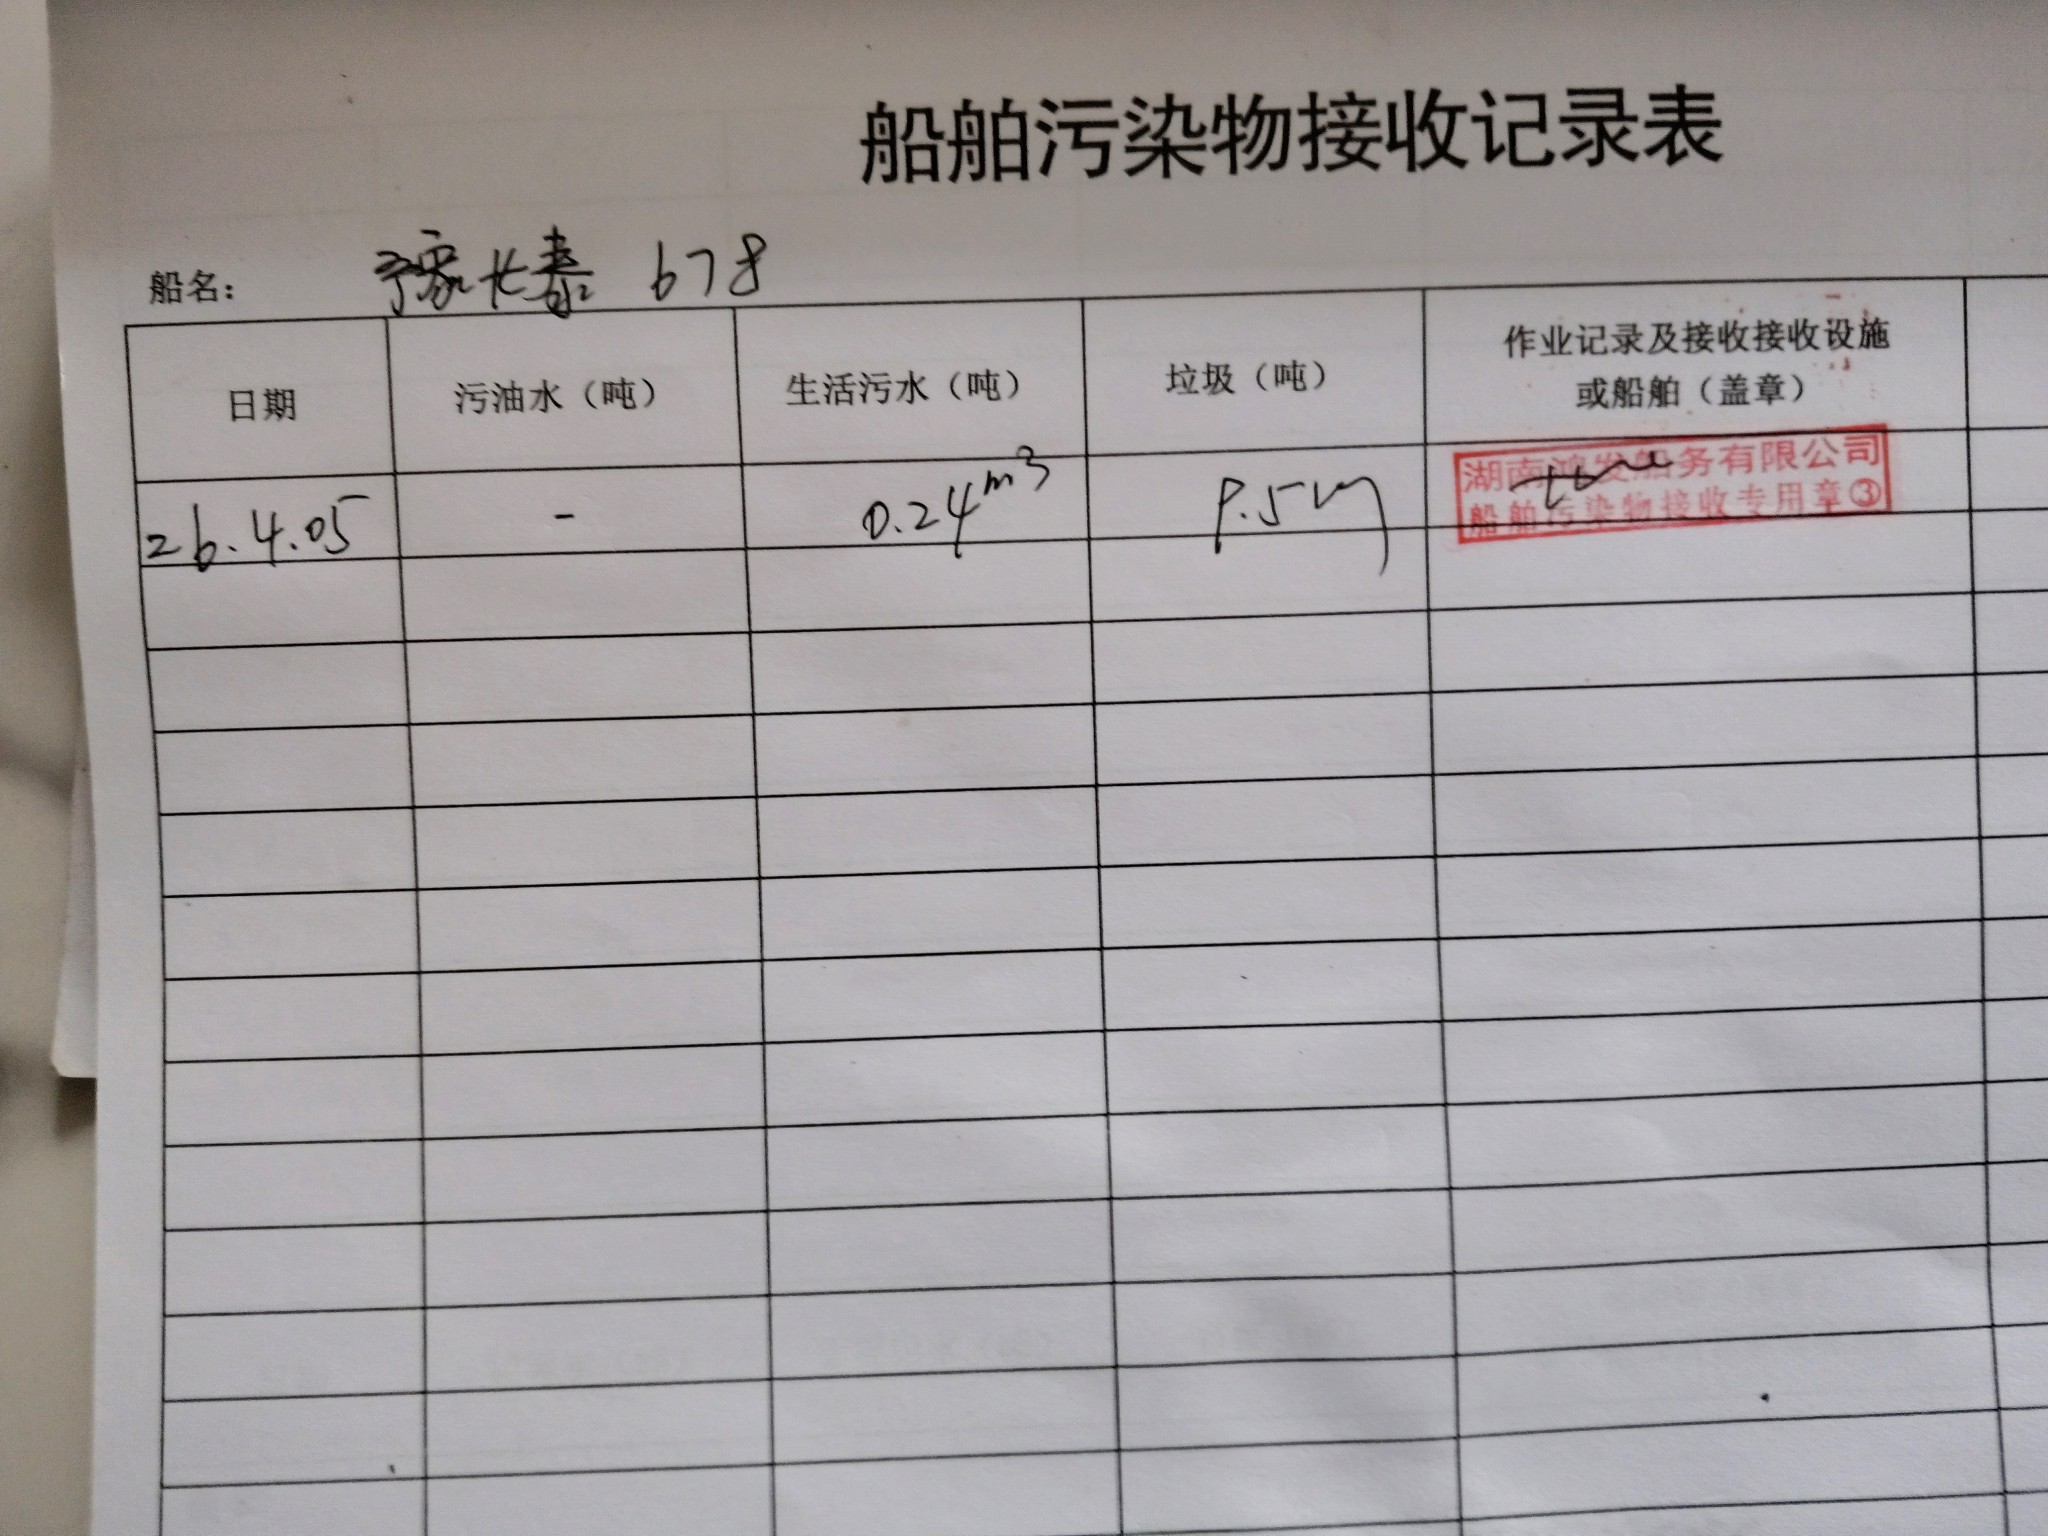 船舶污染物接收记录表
船名： 豫长泰 678
日期 污油水（吨） 生活污水（吨） 垃圾（吨） 作业记录及接收接收设施
或船舶（盖章）
26.4.05 - 0.24m³
湖南鸿发船务有限公司
船舶污染物接收专用章③